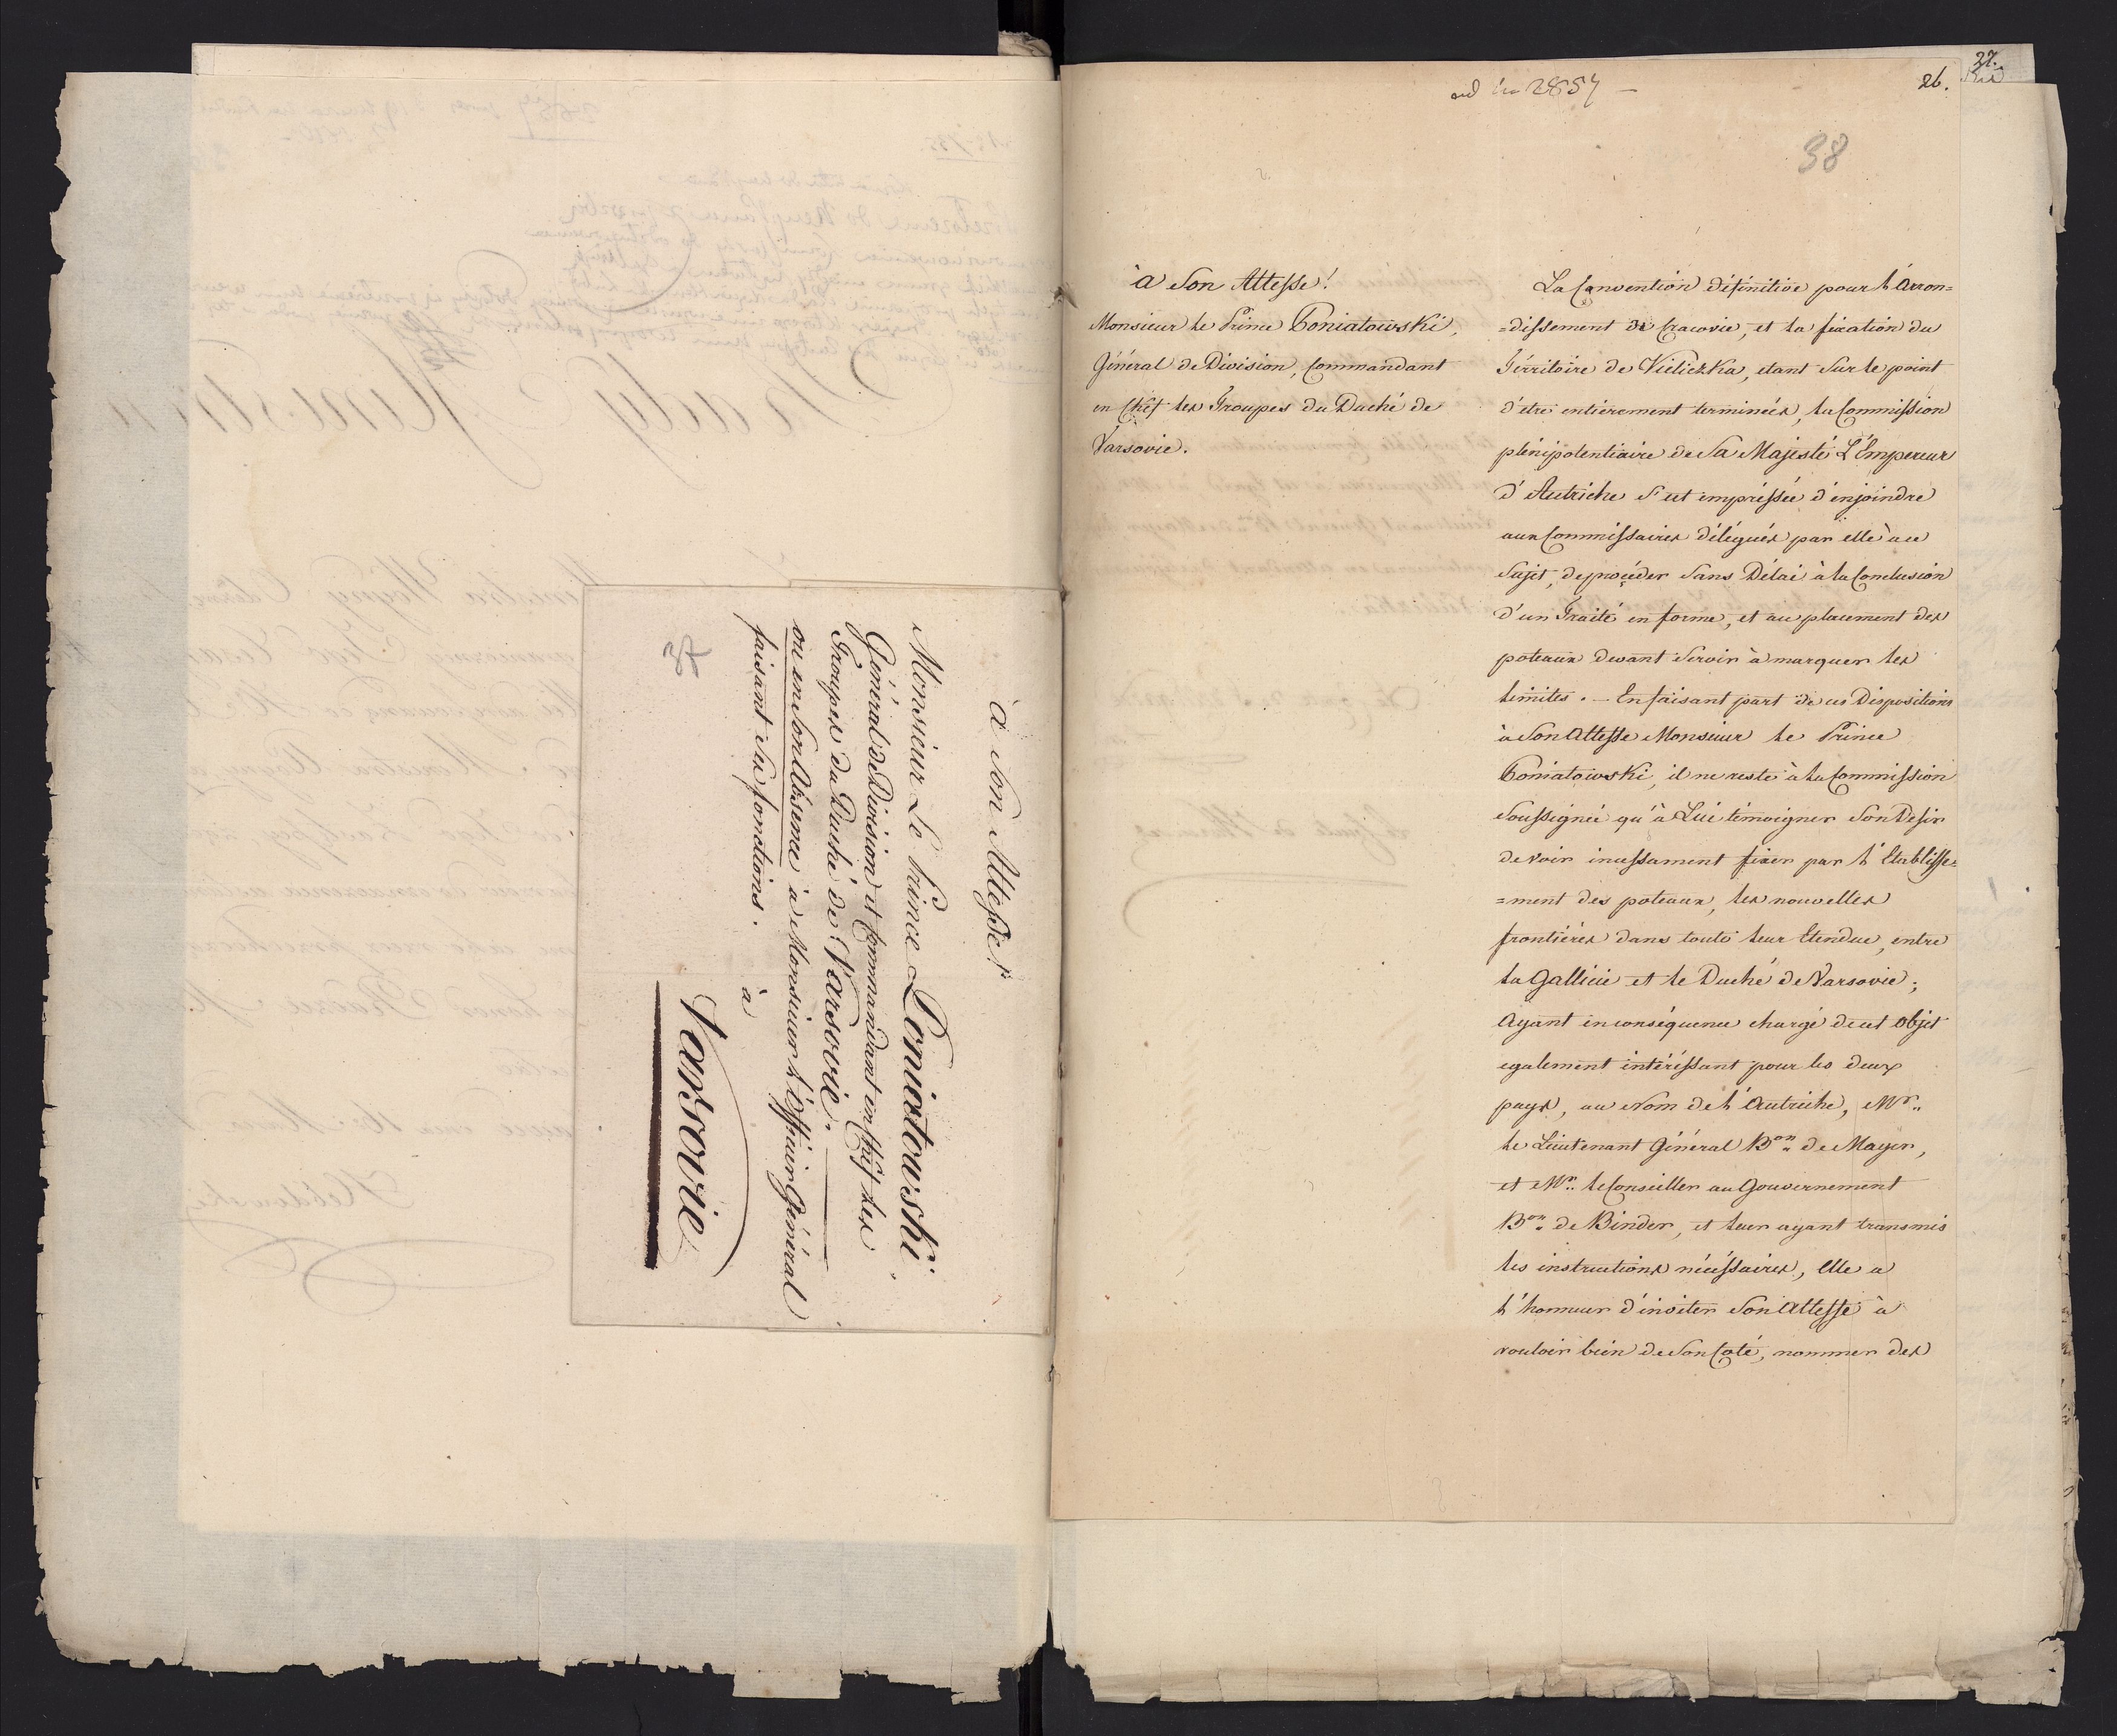 à Son Altesse!
Monsieur Le Prince Poniatowski.
Général de Division et Commandant en Chef les
Troupes du Duché de Varsovie.
ou en Son Absence à Monsieur l'Officier Général
faisant Ses fonctions.
à
Varsovie
37
ad No 2857 —
26.
38
à Son Altesse!
Monsieur le Prince Poniatowski,
Général de Division, Commandant
en Chef les Troupes du Duché de
Varsovie.
La Convention définitive pour l'Arron=
=dissement de Cracovie, et la fixation du
Térritoire de Vieliczka, etant Sur le point
d'etre entiérement terminées, la Commission
plénipotentiaire de Sa Majesté L'Empereur
d'Autriche s'est empréssée d'enjoindre
aux Commissaires délégués par elle à ce
Sujet, de procéder Sans Délai à la Conclusion
d'un Traité en forme, et au placement des
poteaux devant Servir à marquer les
limites. — En faisant part de ces Dispositions
à Son Altesse Monsieur le Prince
Poniatowski, il ne reste à la Commission
Soussignée qu'à Lui témoigner Son Desir
de voir incessament fixer par l'Etablisse=
=ment des poteaux, les nouvelles
frontiéres dans toute leur Etendue, entre
la Gallicie et le Duché de Varsovie;
Ayant en conséquence chargé de cet objet
egalement intéréssant pour les deux
pays, au Nom de l'Autriche, Mr.
le Lieutenant Général Bon de Mayer,
et Mr. le Conseiller au Gouvernement
Bon de Binder, et leur ayant transmis
les instructions nécéssaires, Elle a
l'honneur d'inviter Son Altesse à
vouloir bien de Son Coté, nommer des